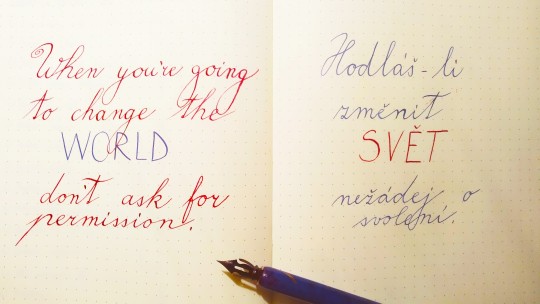 When you're going
to change the
WORLD
don't ask for
permission!
Hodláš-li
změnit
SVĚT
nežádej o
svolení.